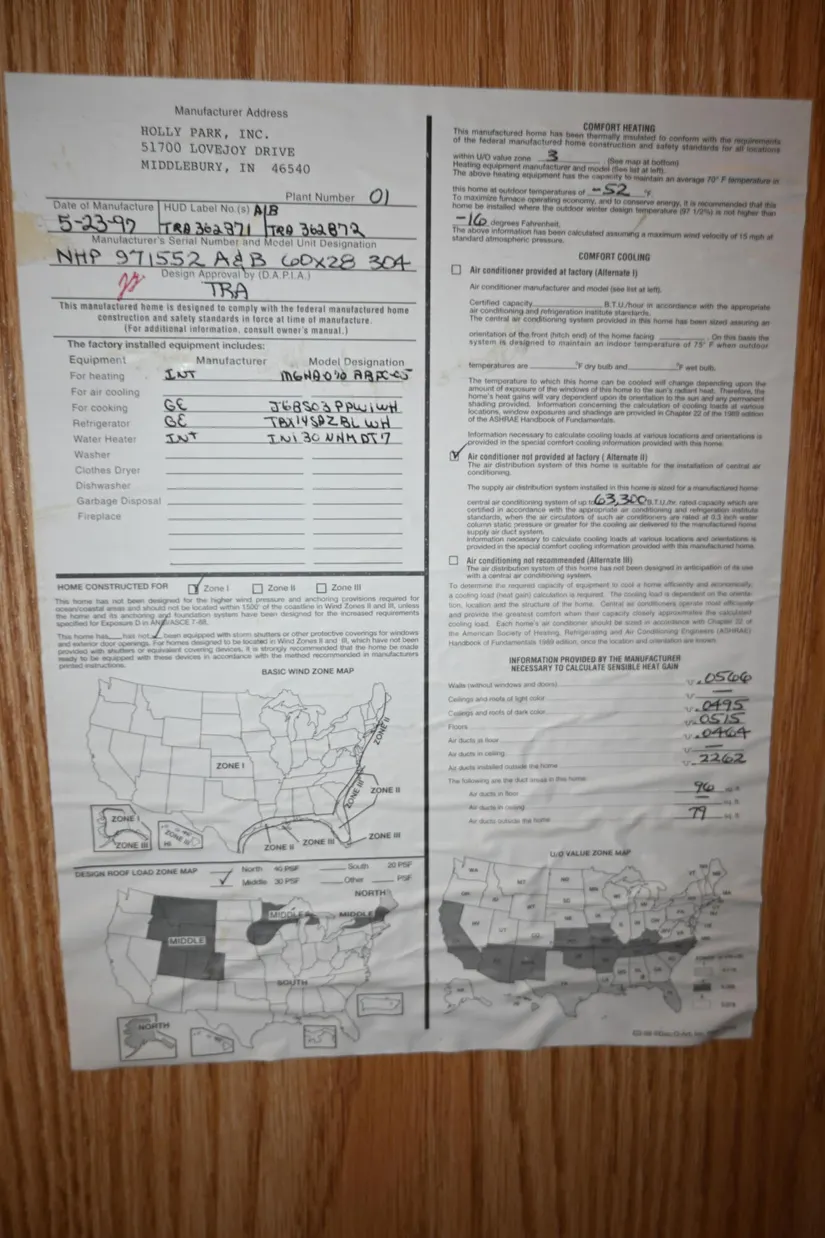 Manufacturer Address
HOLLY PARK, INC.
51700 LOVEJOY DRIVE
MIDDLEBURY, IN 46540
Plant Number 01
Date of Manufacture HUD Label No.(s) A/B
5-23-97 TRA 362871 TRA 362872
Manufacturer's Serial Number and Model Unit Designation
NHP 971552 A&B 60X28 304
Design Approval by (D.A.P.I.A.)
TRA
This manufactured home is designed to comply with the federal manufactured home
construction and safety standards in force at time of manufacture.
(For additional information, consult owner's manual.)
The factory installed equipment includes:
Equipment Manufacturer Model Designation
For heating INT
For air cooling
For cooking GE
Refrigerator GE
Water Heater INT
Washer
Clothes Dryer
Dishwasher
Garbage Disposal
Fireplace
HOME CONSTRUCTED FOR Zone I Zone II Zone III
This home has not been designed for the higher wind pressure and anchoring provisions required for
ocean/coastal areas and should not be located within 1500' of the coastline in Wind Zones II and III, unless
the home and its anchoring and foundation system have been designed for the increased requirements
specified for Exposure D in ANSI/ASCE 7-88.
This home has has not been equipped with storm shutters or other protective coverings for windows
and exterior door openings. For homes designed to be located in Wind Zones II and III, which have not been
provided with shutters or equivalent covering devices, it is strongly recommended that the home be made
ready to be equipped with these devices in accordance with the method recommended in manufacturers
printed instructions.
BASIC WIND ZONE MAP
ZONE II
ZONE I
ZONE II
ZONE III
ZONE I
ZONE III
ZONE II
HI
ZONE II
ZONE III
ZONE III
DESIGN ROOF LOAD ZONE MAP
North 40 PSF South 20 PSF
Middle 30 PSF Other PSF
NORTH
MIDDLE
MIDDLE
MIDDLE
SOUTH
NORTH
COMFORT HEATING
This manufactured home has been thermally insulated to conform with the requirements
of the federal manufactured home construction and safety standards for all locations
within U/O value zone 3 (See map at bottom)
Heating equipment manufacturer and model (See list at left).
The above heating equipment has the capacity to maintain an average 70° F temperature in
this home at outdoor temperatures of -52 °F.
To maximize furnace operating economy, and to conserve energy, it is recommended that this
home be installed where the outdoor winter design temperature (97 1/2%) is not higher than
-16 degrees Fahrenheit.
The above information has been calculated assuming a maximum wind velocity of 15 mph at
standard atmospheric pressure.
COMFORT COOLING
Air conditioner provided at factory (Alternate I)
Air conditioner manufacturer and model (see list at left).
Certified capacity B.T.U./hour in accordance with the appropriate
air conditioning and refrigeration institute standards.
The central air conditioning system provided in this home has been sized assuming an
orientation of the front (hitch end) of the home facing . On this basis the
system is designed to maintain an indoor temperature of 75° F when outdoor
temperatures are °F dry bulb and °F wet bulb.
The temperature to which this home can be cooled will change depending upon the
amount of exposure of the windows of this home to the sun's radiant heat. Therefore, the
home's heat gains will vary dependent upon its orientation to the sun and any permanent
shading provided. Information concerning the calculation of cooling loads at various
locations, window exposures and shadings are provided in Chapter 22 of the 1989 edition
of the ASHRAE Handbook of Fundamentals.
Information necessary to calculate cooling loads at various locations and orientations is
provided in the special comfort cooling information provided with this home.
Air conditioner not provided at factory ( Alternate II)
The air distribution system of this home is suitable for the installation of central air
conditioning.
The supply air distribution system installed in this home is sized for a manufactured home
central air conditioning system of up to 63,300 B.T.U./hr. rated capacity which are
certified in accordance with the appropriate air conditioning and refrigeration institute
standards, when the air circulators of such air conditioners are rated at 0.3 inch water
column static pressure or greater for the cooling air delivered to the manufactured home
supply air duct system.
Information necessary to calculate cooling loads at various locations and orientations is
provided in the special comfort cooling information provided with this manufactured home.
Air conditioning not recommended (Alternate III)
The air distribution system of this home has not been designed in anticipation of its use
with a central air conditioning system.
To determine the required capacity of equipment to cool a home efficiently and economically,
a cooling load (heat gain) calculation is required. The cooling load is dependent on the orienta-
tion, location and the structure of the home. Central air conditioners operate most efficiently
and provide the greatest comfort when their capacity closely approximates the calculated
cooling load. Each home's air conditioner should be sized in accordance with Chapter 22 of
the American Society of Heating, Refrigerating and Air Conditioning Engineers (ASHRAE)
Handbook of Fundamentals 1989 edition, once the location and orientation are known.
INFORMATION PROVIDED BY THE MANUFACTURER
NECESSARY TO CALCULATE SENSIBLE HEAT GAIN
Walls (without windows and doors) .0566
Ceilings and roofs of light color —
Ceilings and roofs of dark color .0495
Floors .0515
Air ducts in floor .0464
Air ducts in ceiling —
Air ducts installed outside the home .2262
The following are the duct areas in this home:
Air ducts in floor 96 sq. ft.
Air ducts in ceiling — sq. ft.
Air ducts outside the home 79 sq. ft.
U/O VALUE ZONE MAP